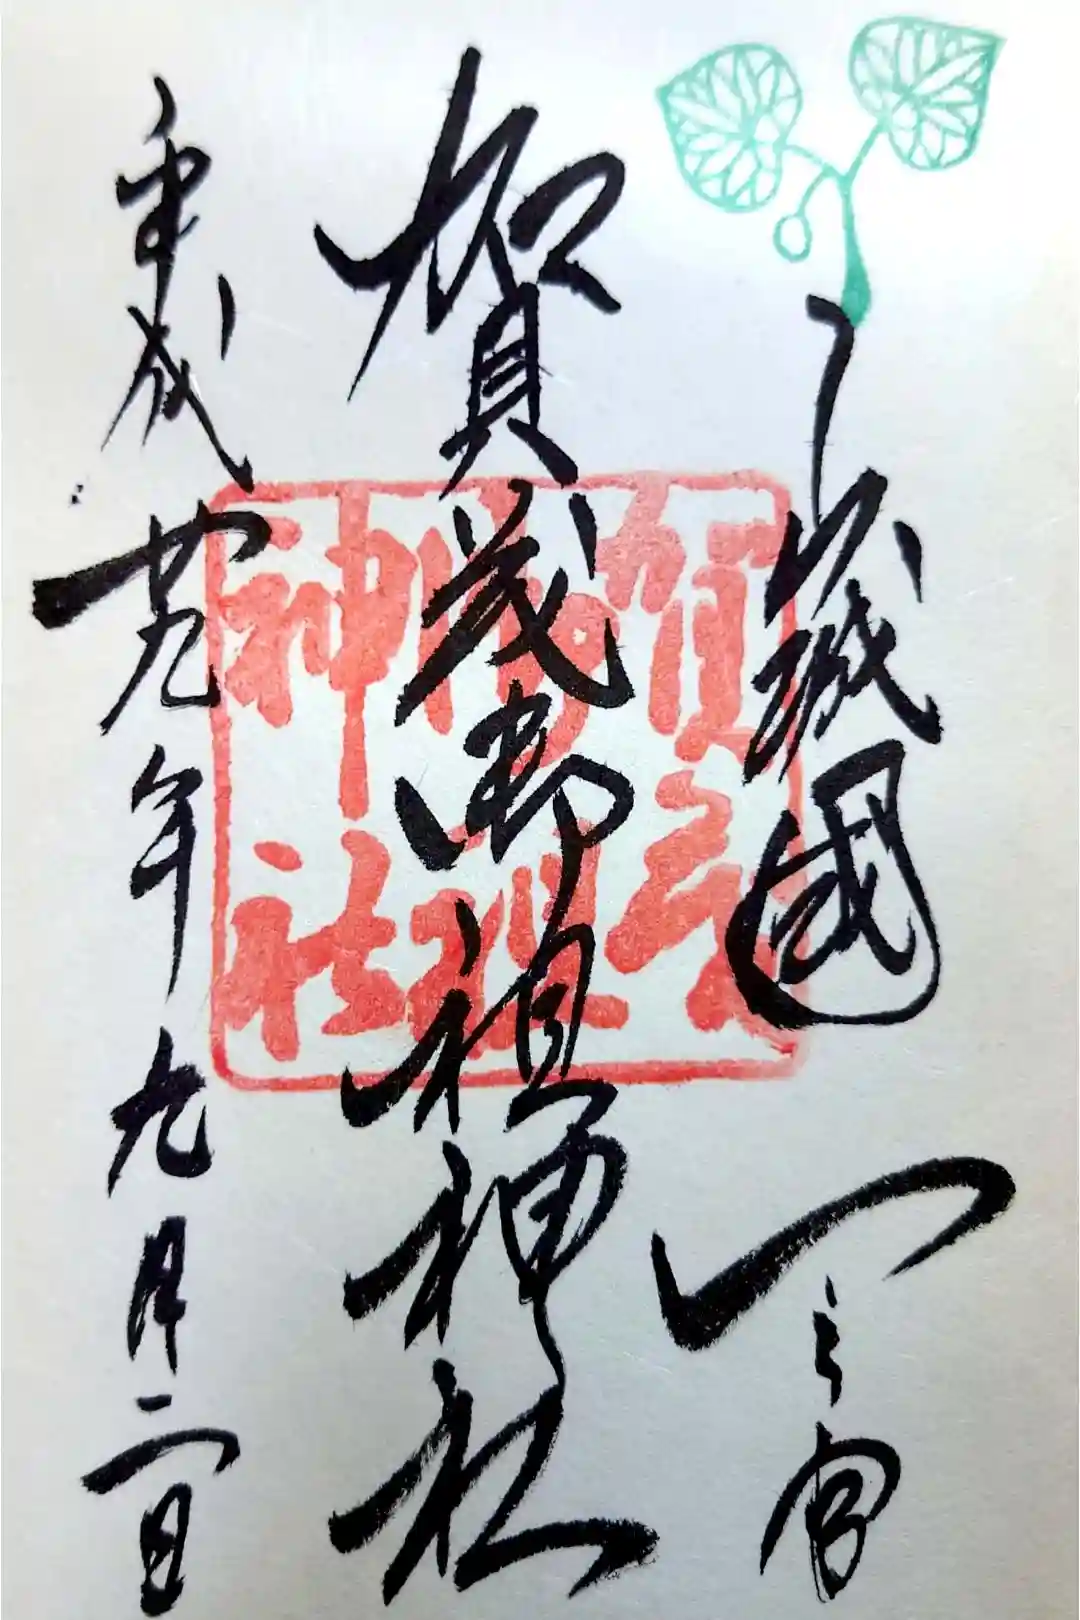 山城國 一之宮
賀茂御祖神社
平成廿九年九月二日
賀茂
御祖
神社